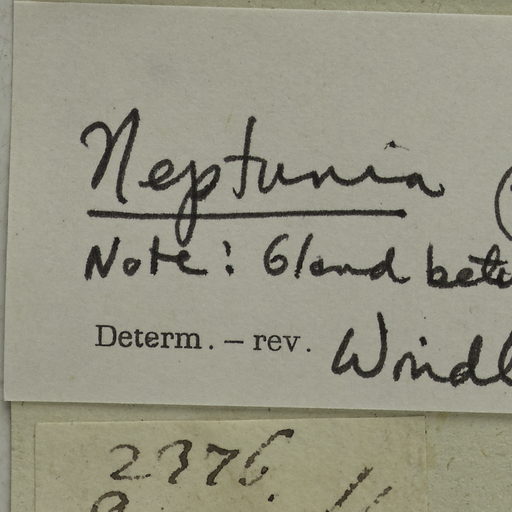 Neptunia (
Note: Gland betw
Determ. – rev. Windl
2376